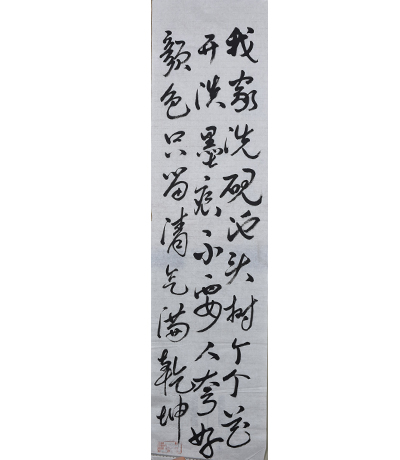 我家洗砚池头树个个花
开淡墨痕不要人夸好
颜色只留清气满乾坤